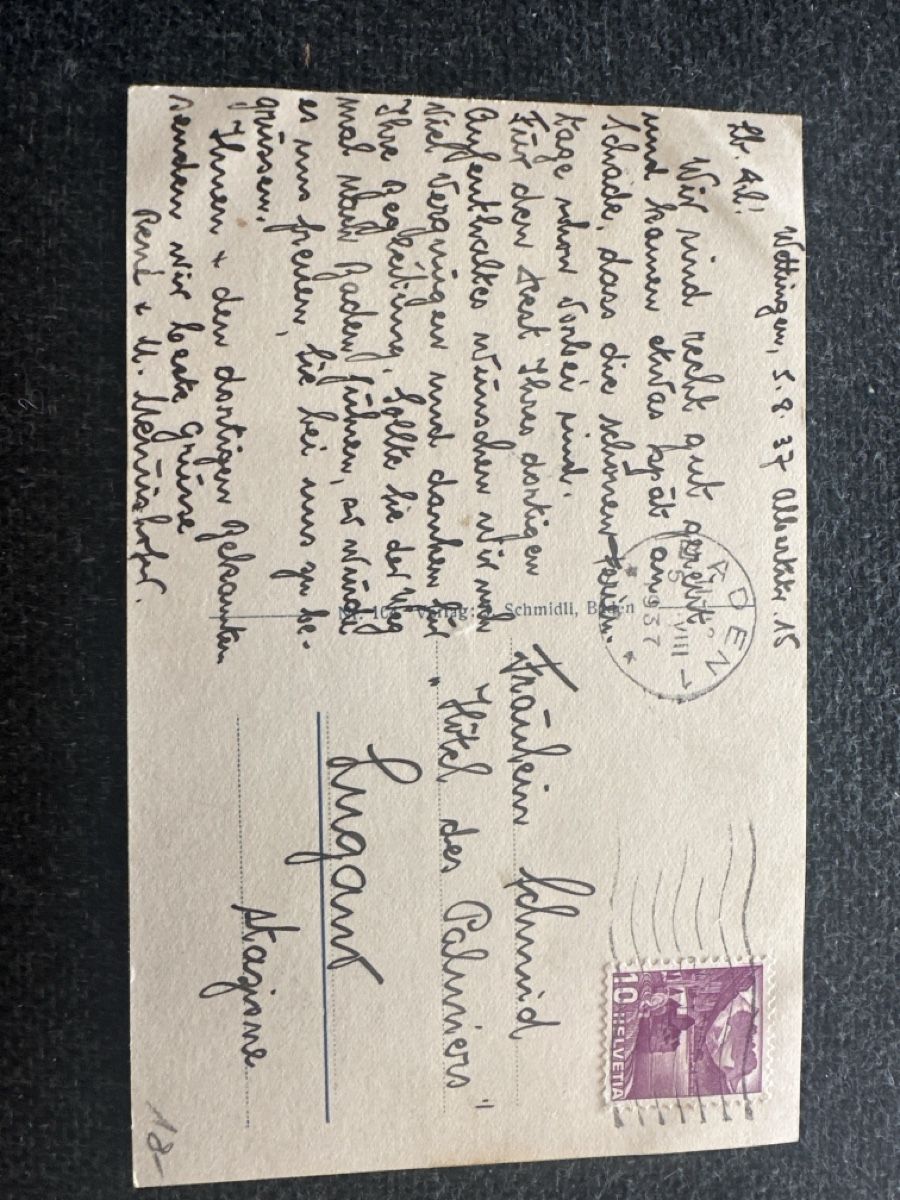 Wettingen, 5. 8. 37 Albertstr. 15
Lb. A.!
Wir sind recht gut gereist
und kamen etwas spät an.
Schade, dass die schönen Ferien-
tage schon vorbei sind.
Für den Rest Ihres dortigen
Aufenthaltes wünschen wir noch
viel Vergnügen und danken für
Ihre Begleitung. Sollte Sie der Weg
mal nach Baden führen, so würde
es uns freuen, Sie bei uns zu be-
grüssen.
Ihnen + den dortigen Bekannten
senden wir beste Grüsse
René + M.
Verlag: Schmidli, Baden
BADEN
5. VIII
1937
10 HELVETIA
Fräulein Schmid
"Hôtel des Palmiers"
Lugano
stazione
18-